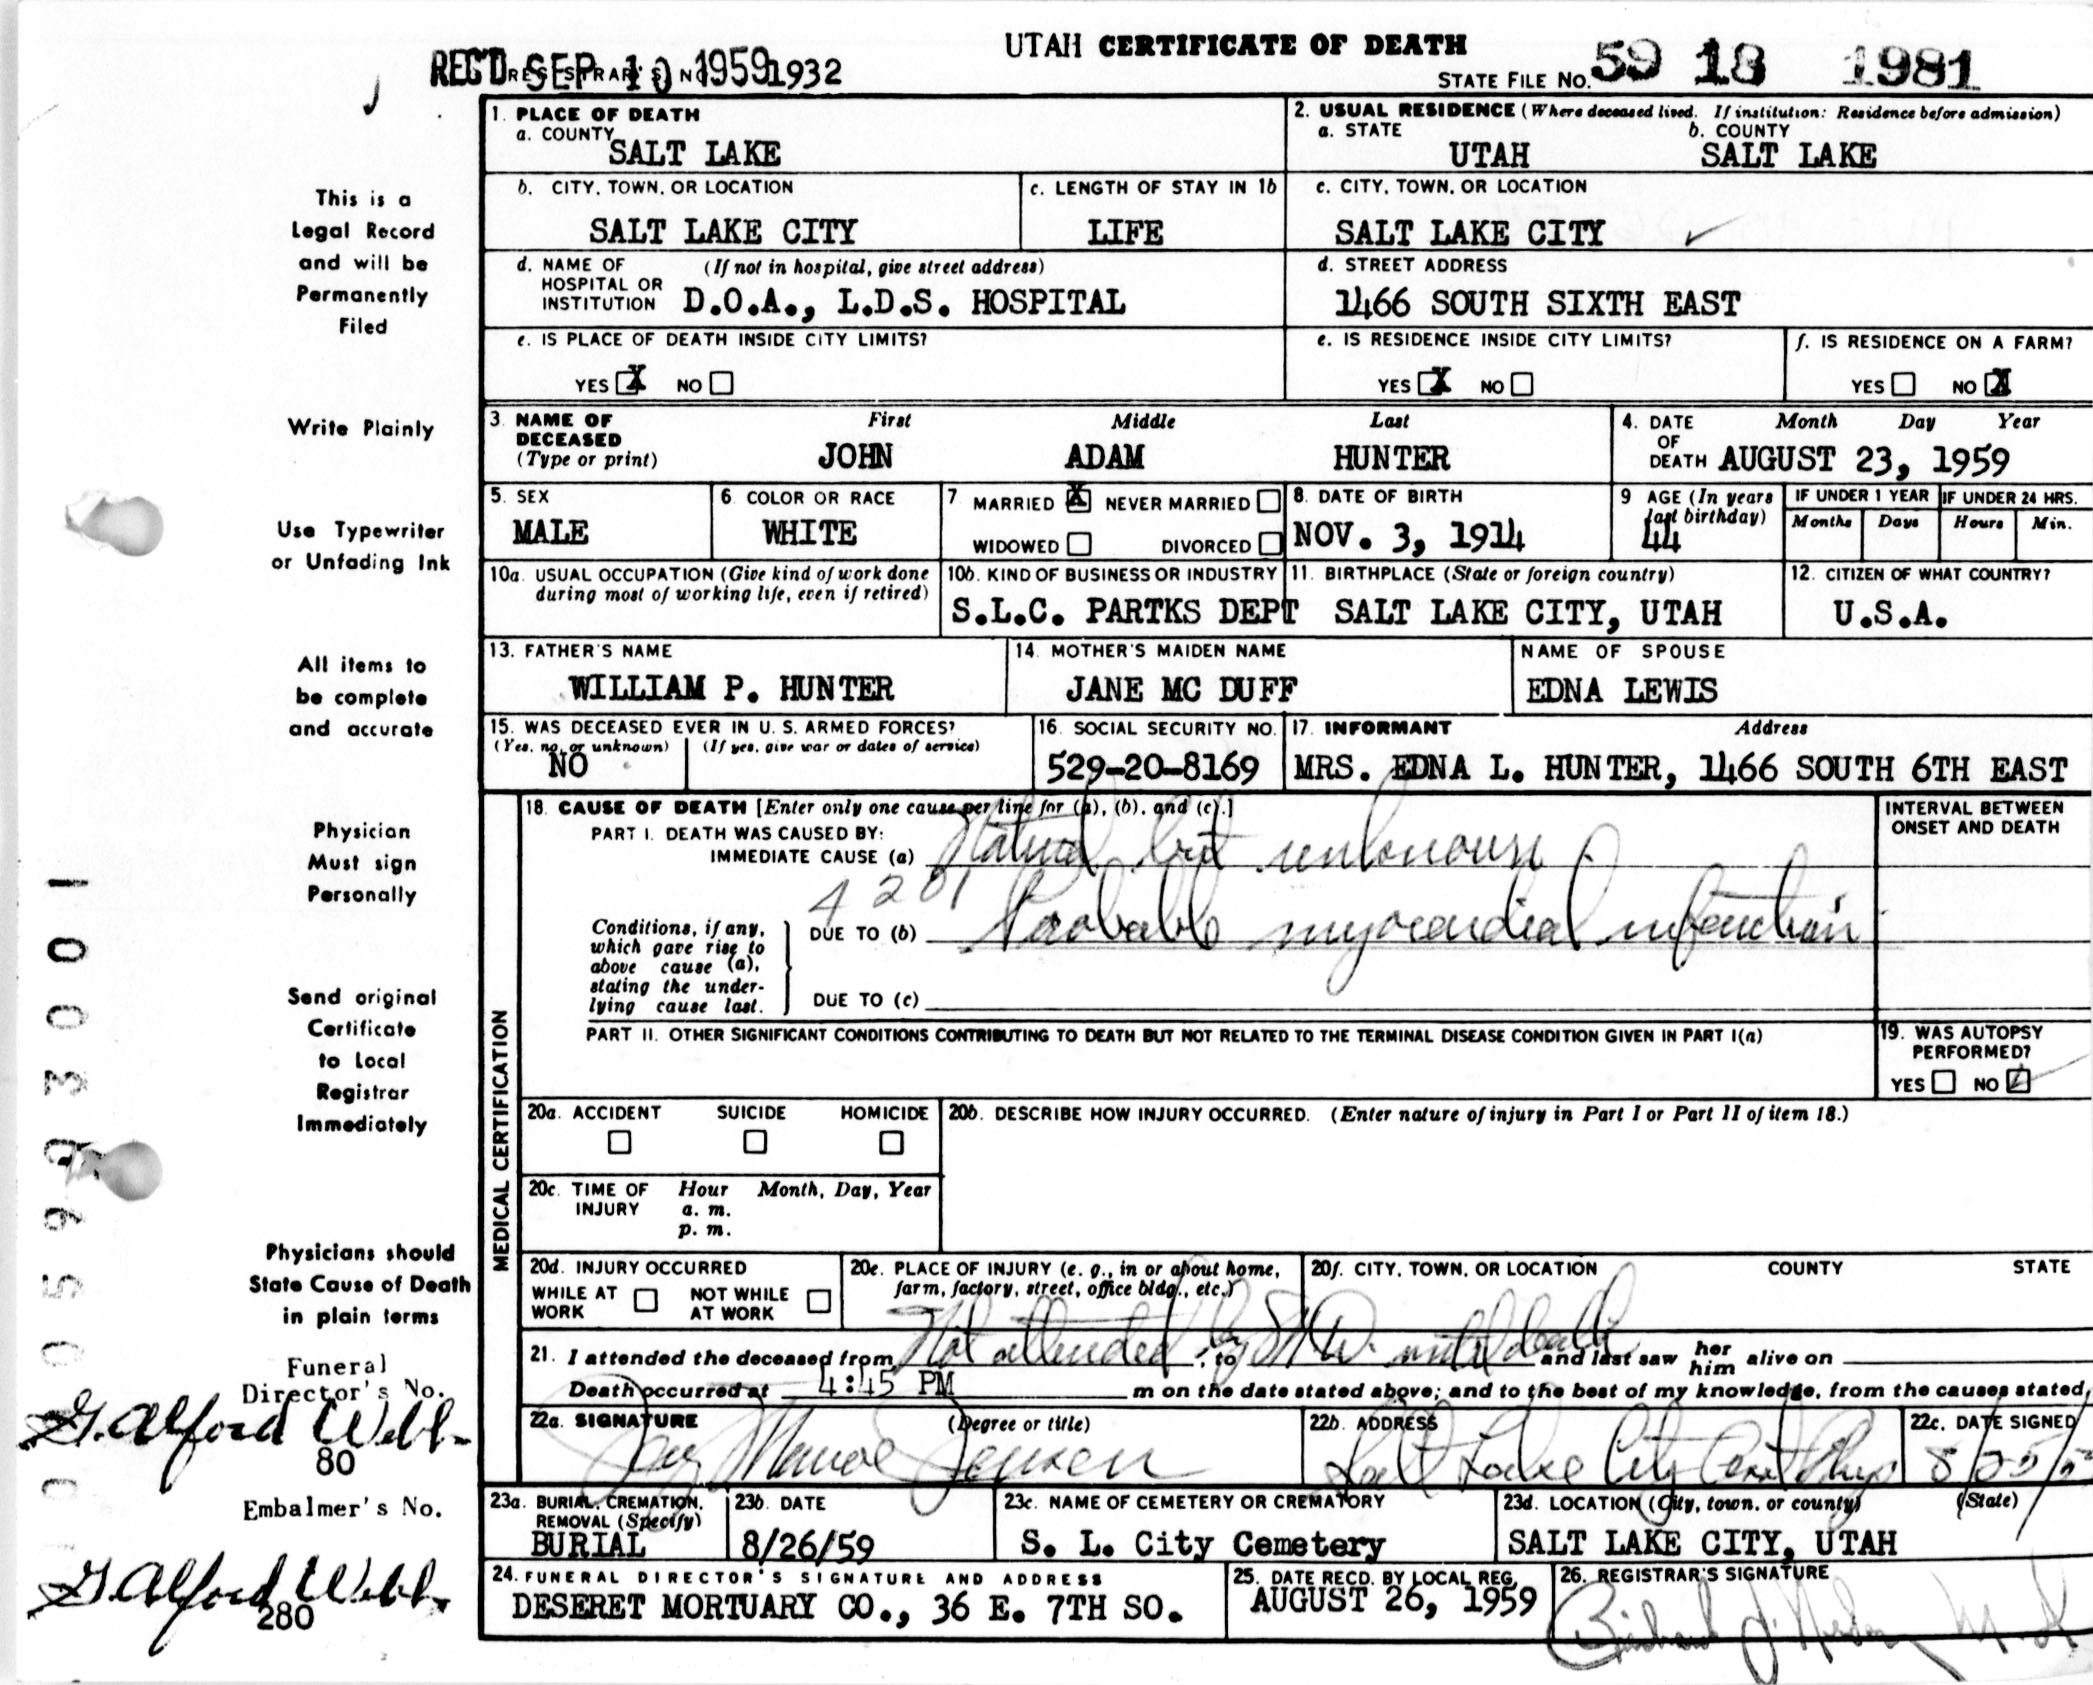 UTAH CERTIFICATE OF DEATH
REC'D SEP 10 1959 1932
STATE FILE NO. 59 18 1981
1. PLACE OF DEATH
a. COUNTY
SALT LAKE
2. USUAL RESIDENCE (Where deceased lived. If institution: Residence before admission)
a. STATE b. COUNTY
UTAH SALT LAKE
b. CITY, TOWN, OR LOCATION
SALT LAKE CITY
c. LENGTH OF STAY IN 1b
LIFE
c. CITY, TOWN, OR LOCATION
SALT LAKE CITY
d. NAME OF HOSPITAL OR INSTITUTION (If not in hospital, give street address)
D.O.A., L.D.S. HOSPITAL
d. STREET ADDRESS
1466 SOUTH SIXTH EAST
e. IS PLACE OF DEATH INSIDE CITY LIMITS?
YES X NO
e. IS RESIDENCE INSIDE CITY LIMITS?
YES X NO
f. IS RESIDENCE ON A FARM?
YES NO X
3. NAME OF DECEASED (Type or print)
First Middle Last
JOHN ADAM HUNTER
4. DATE OF DEATH Month Day Year
AUGUST 23, 1959
5. SEX
MALE
6. COLOR OR RACE
WHITE
7 MARRIED X NEVER MARRIED
WIDOWED DIVORCED
8. DATE OF BIRTH
NOV. 3, 1914
9 AGE (In years last birthday)
44
IF UNDER 1 YEAR
Months Days
IF UNDER 24 HRS.
Hours Min.
10a. USUAL OCCUPATION (Give kind of work done during most of working life, even if retired)
10b. KIND OF BUSINESS OR INDUSTRY
S.L.C. PARTKS DEPT
11. BIRTHPLACE (State or foreign country)
SALT LAKE CITY, UTAH
12. CITIZEN OF WHAT COUNTRY?
U.S.A.
13. FATHER'S NAME
WILLIAM P. HUNTER
14. MOTHER'S MAIDEN NAME
JANE MC DUFF
NAME OF SPOUSE
EDNA LEWIS
15. WAS DECEASED EVER IN U. S. ARMED FORCES?
(Yes, no, or unknown) (If yes, give war or dates of service)
NO
16. SOCIAL SECURITY NO.
529-20-8169
17. INFORMANT Address
MRS. EDNA L. HUNTER, 1466 SOUTH 6TH EAST
MEDICAL CERTIFICATION
18. CAUSE OF DEATH [Enter only one cause per line for (a), (b), and (c).]
PART I. DEATH WAS CAUSED BY:
IMMEDIATE CAUSE (a) Natural but unknown
4201
Conditions, if any, which gave rise to above cause (a), stating the underlying cause last.
DUE TO (b) Probable myocardial infarction
DUE TO (c)
INTERVAL BETWEEN ONSET AND DEATH
PART II. OTHER SIGNIFICANT CONDITIONS CONTRIBUTING TO DEATH BUT NOT RELATED TO THE TERMINAL DISEASE CONDITION GIVEN IN PART I(a)
19. WAS AUTOPSY PERFORMED?
YES NO
20a. ACCIDENT SUICIDE HOMICIDE
20b. DESCRIBE HOW INJURY OCCURRED. (Enter nature of injury in Part I or Part II of item 18.)
20c. TIME OF INJURY Hour Month, Day, Year
a. m.
p. m.
20d. INJURY OCCURRED
WHILE AT WORK NOT WHILE AT WORK
20e. PLACE OF INJURY (e. g., in or about home, farm, factory, street, office bldg., etc.)
20f. CITY, TOWN, OR LOCATION COUNTY STATE
Not attended by M.D. until death
21. I attended the deceased from , to and last saw her him alive on
Death occurred at 4:45 PM m on the date stated above; and to the best of my knowledge, from the causes stated,
22a. SIGNATURE (Degree or title)
Jay Monroe Jensen
22b. ADDRESS
Salt Lake City
22c. DATE SIGNED
8/25/
23a. BURIAL, CREMATION, REMOVAL (Specify)
BURIAL
23b. DATE
8/26/59
23c. NAME OF CEMETERY OR CREMATORY
S. L. City Cemetery
23d. LOCATION (City, town, or county) (State)
SALT LAKE CITY, UTAH
24. FUNERAL DIRECTOR'S SIGNATURE AND ADDRESS
DESERET MORTUARY CO., 36 E. 7TH SO.
25. DATE RECD. BY LOCAL REG.
AUGUST 26, 1959
26. REGISTRAR'S SIGNATURE
This is a
Legal Record
and will be
Permanently
Filed
Write Plainly
Use Typewriter
or Unfading Ink
All items to
be complete
and accurate
Physician
Must sign
Personally
Send original
Certificate
to Local
Registrar
Immediately
Physicians should
State Cause of Death
in plain terms
Funeral
Director's No.
G. Alford Webb
80
Embalmer's No.
G Alford Webb
280